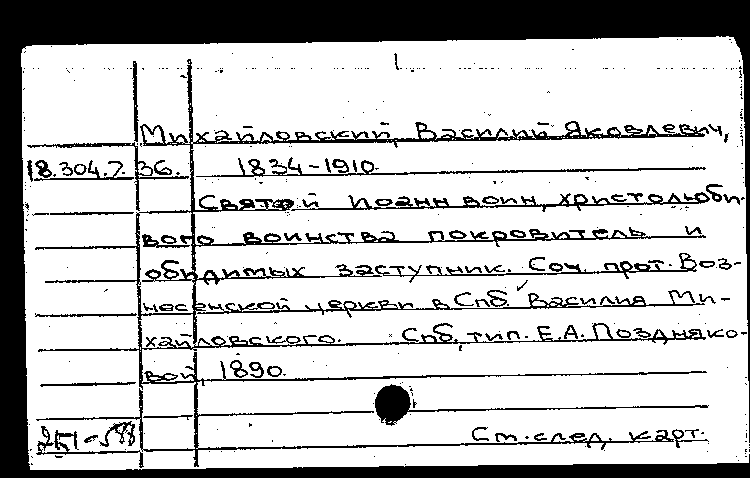 Михайловский, Василий Яковлевич,
18.304.7.36. 1834-1910.
Святой Иоанн воин, христолюби-
вого воинства покровитель и
обидимых заступник. Соч. прот. Воз-
несенской церкви в Спб. Василия Ми-
хайловского. Спб, тип. Е.А. Позднякo-
вой, 1890.
См. след. карт.